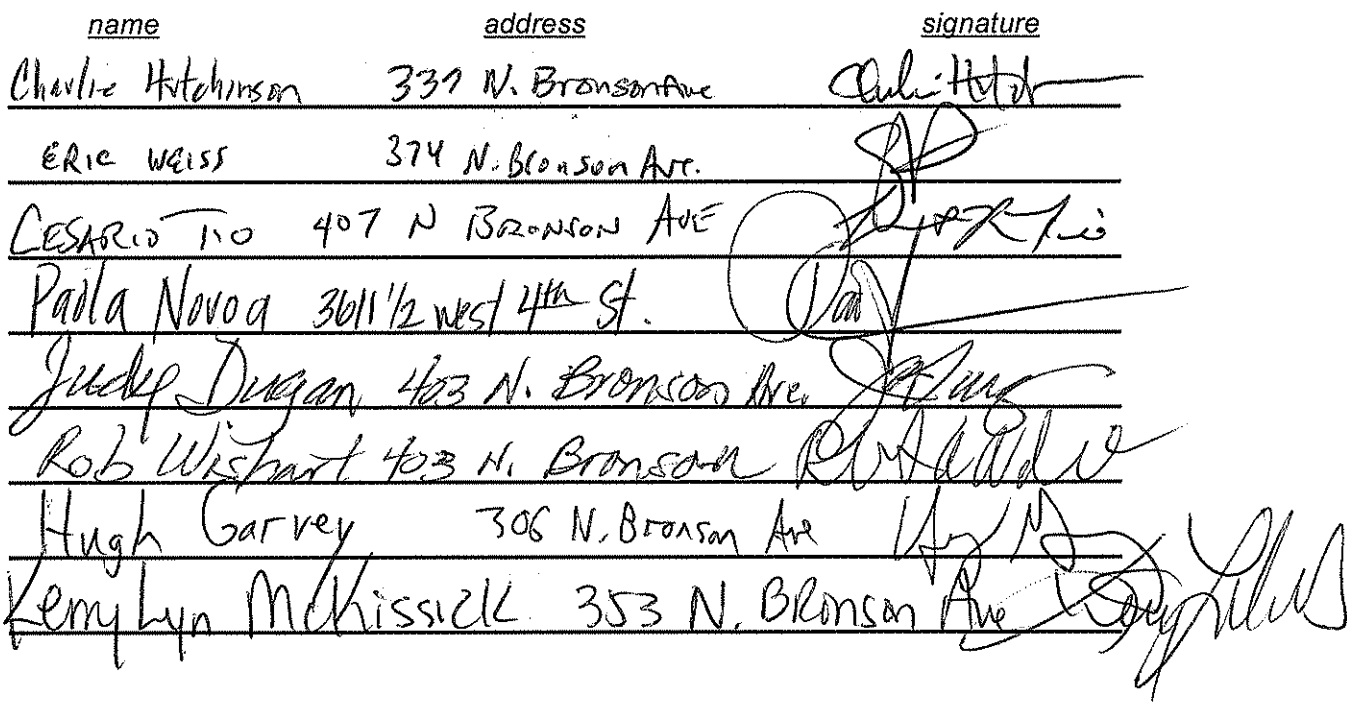 name address signature
Charlie Hutchinson 337 N. Bronson Ave
ERIC WEISS 374 N. Bronson Ave.
CESARIO TIO 407 N BRONSON AVE
Paola Novoa 3611 1/2 west 4th St.
Judy Dugan 403 N. Bronson Ave.
Rob Wishart 403 N. Bronson
Hugh Garvey 306 N. Bronson Ave
Kerry Lyn McKissick 353 N. BRonson Ave